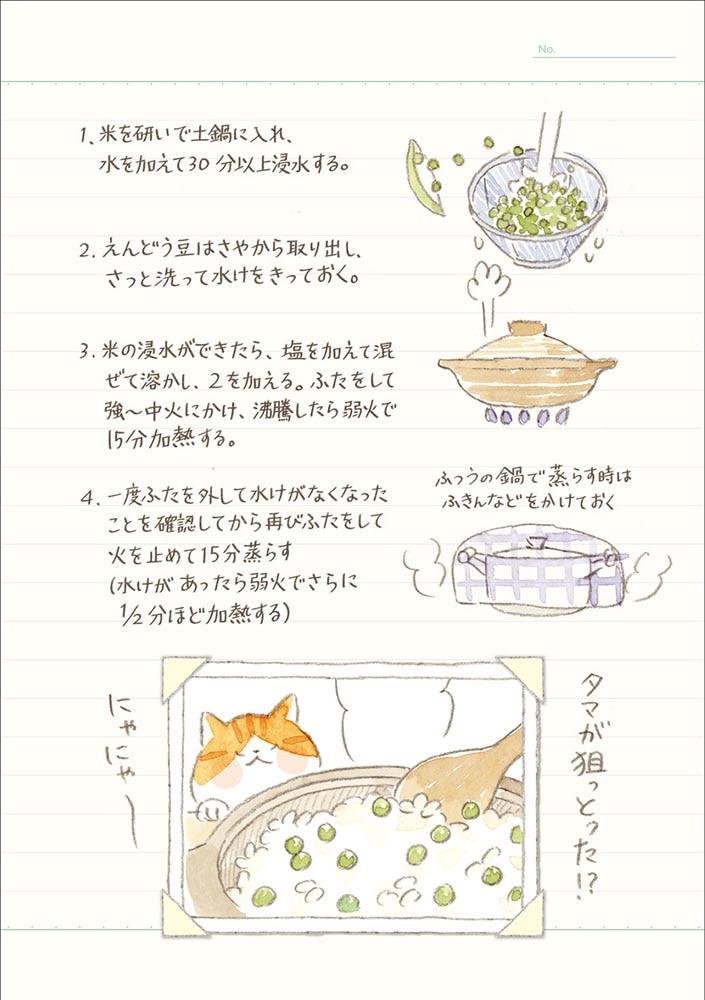 No.
1、米を研いで土鍋に入れ、
水を加えて30分以上浸水する。
2、えんどう豆はさやから取り出し、
さっと洗って水けをきっておく。
3、米の浸水ができたら、塩を加えて混
ぜて溶かし、2を加える。ふたをして
強〜中火にかけ、沸騰したら弱火で
15分加熱する。
4、一度ふたを外して水けがなくなった
ことを確認してから再びふたをして
火を止めて15分蒸らす
(水けがあったら弱火でさらに
1/2分ほど加熱する)
ふつうの鍋で蒸らす時は
ふきんなどをかけておく
タマが狙っとった!?
にゃにゃ〜